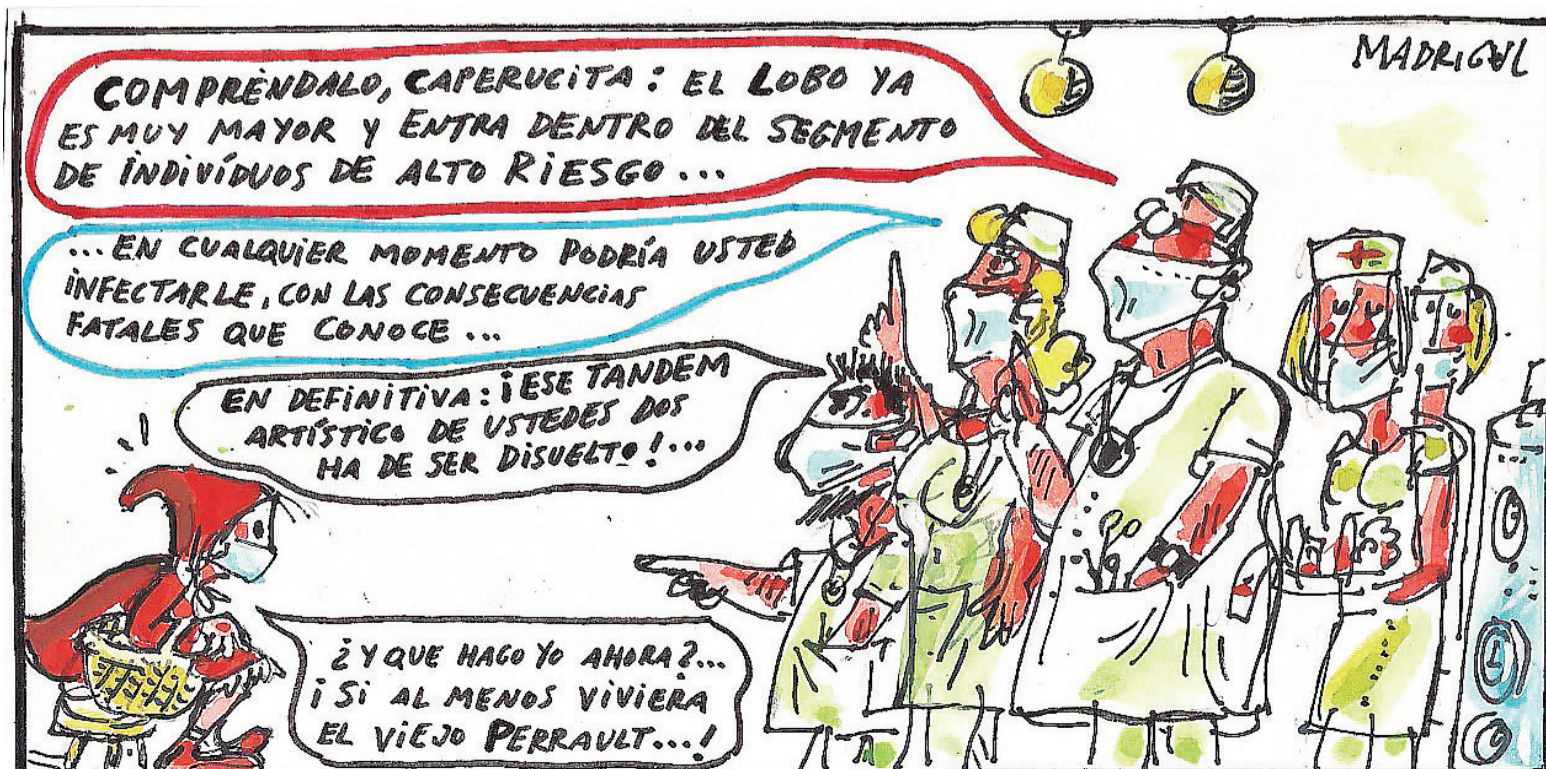 MADRIGAL
COMPRÉNDALO, CAPERUCITA: EL LOBO YA
ES MUY MAYOR Y ENTRA DENTRO DEL SEGMENTO
DE INDIVÍDUOS DE ALTO RIESGO...
...EN CUALQUIER MOMENTO PODRÍA USTED
INFECTARLE, CON LAS CONSECUENCIAS
FATALES QUE CONOCE...
EN DEFINITIVA: ¡ESE TANDEM
ARTÍSTICO DE USTEDES DOS
HA DE SER DISUELTO!...
¿Y QUE HAGO YO AHORA?...
¡SI AL MENOS VIVIERA
EL VIEJO PERRAULT...!